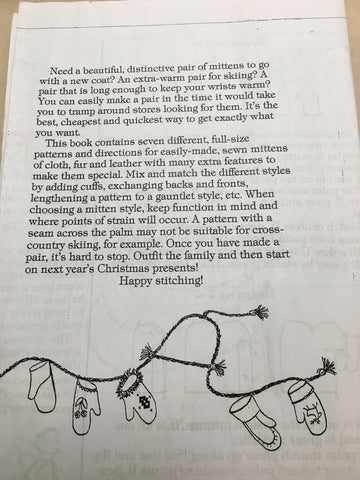 Need a beautiful, distinctive pair of mittens to go
with a new coat? An extra-warm pair for skiing? A
pair that is long enough to keep your wrists warm?
You can easily make a pair in the time it would take
you to tramp around stores looking for them. It's the
best, cheapest and quickest way to get exactly what
you want.
This book contains seven different, full-size
patterns and directions for easily-made, sewn mittens
of cloth, fur and leather with many extra features to
make them special. Mix and match the different styles
by adding cuffs, exchanging backs and fronts,
lengthening a pattern to a gauntlet style, etc. When
choosing a mitten style, keep function in mind and
where points of strain will occur. A pattern with a
seam across the palm may not be suitable for cross-
country skiing, for example. Once you have made a
pair, it's hard to stop. Outfit the family and then start
on next year's Christmas presents!
Happy stitching!